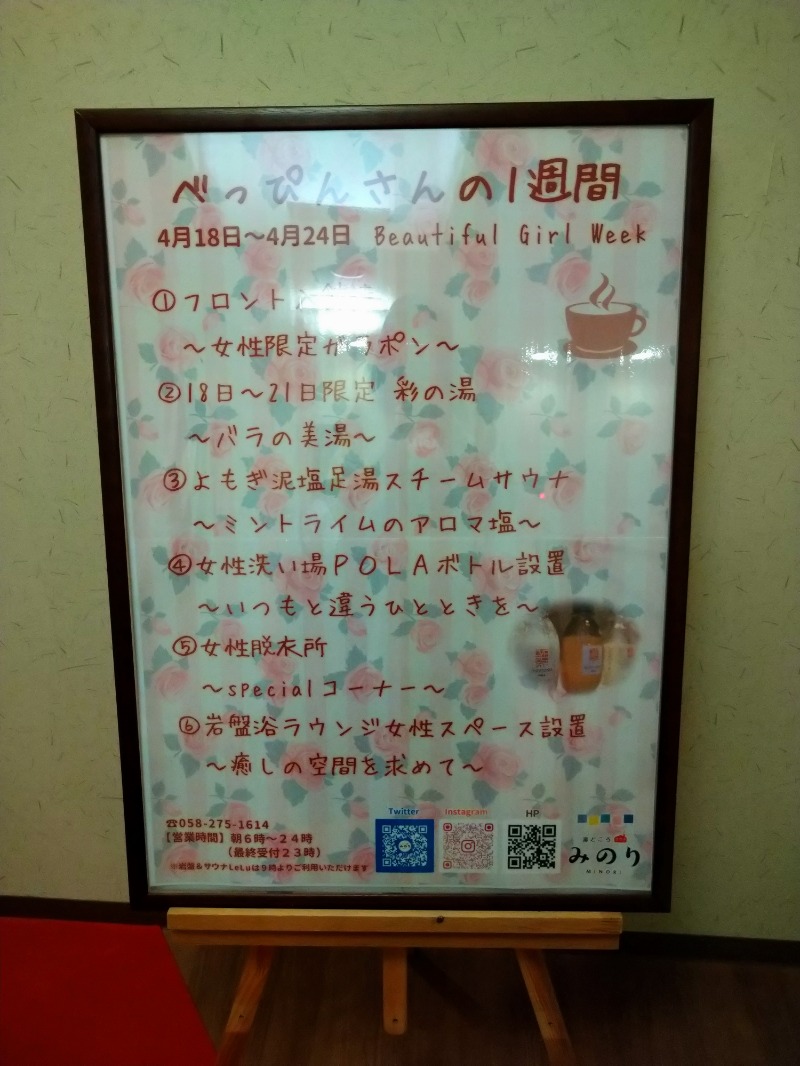 べっぴんさんの1週間
4月18日〜4月24日 Beautiful Girl Week
①フロント
〜女性限定ガラポン〜
②18日〜21日限定 彩の湯
〜バラの美湯〜
③よもぎ泥塩足湯スチームサウナ
〜ミントライムのアロマ塩〜
④女性洗い場POLAボトル設置
〜いつもと違うひとときを〜
⑤女性脱衣所
〜specialコーナー〜
⑥岩盤浴ラウンジ女性スペース設置
〜癒しの空間を求めて〜
☎058-275-1614
【営業時間】朝6時〜24時
(最終受付23時)
※岩盤&サウナLeLuは9時よりご利用いただけます
Twitter
Instagram
HP
湯どころ
みのり
MINORI